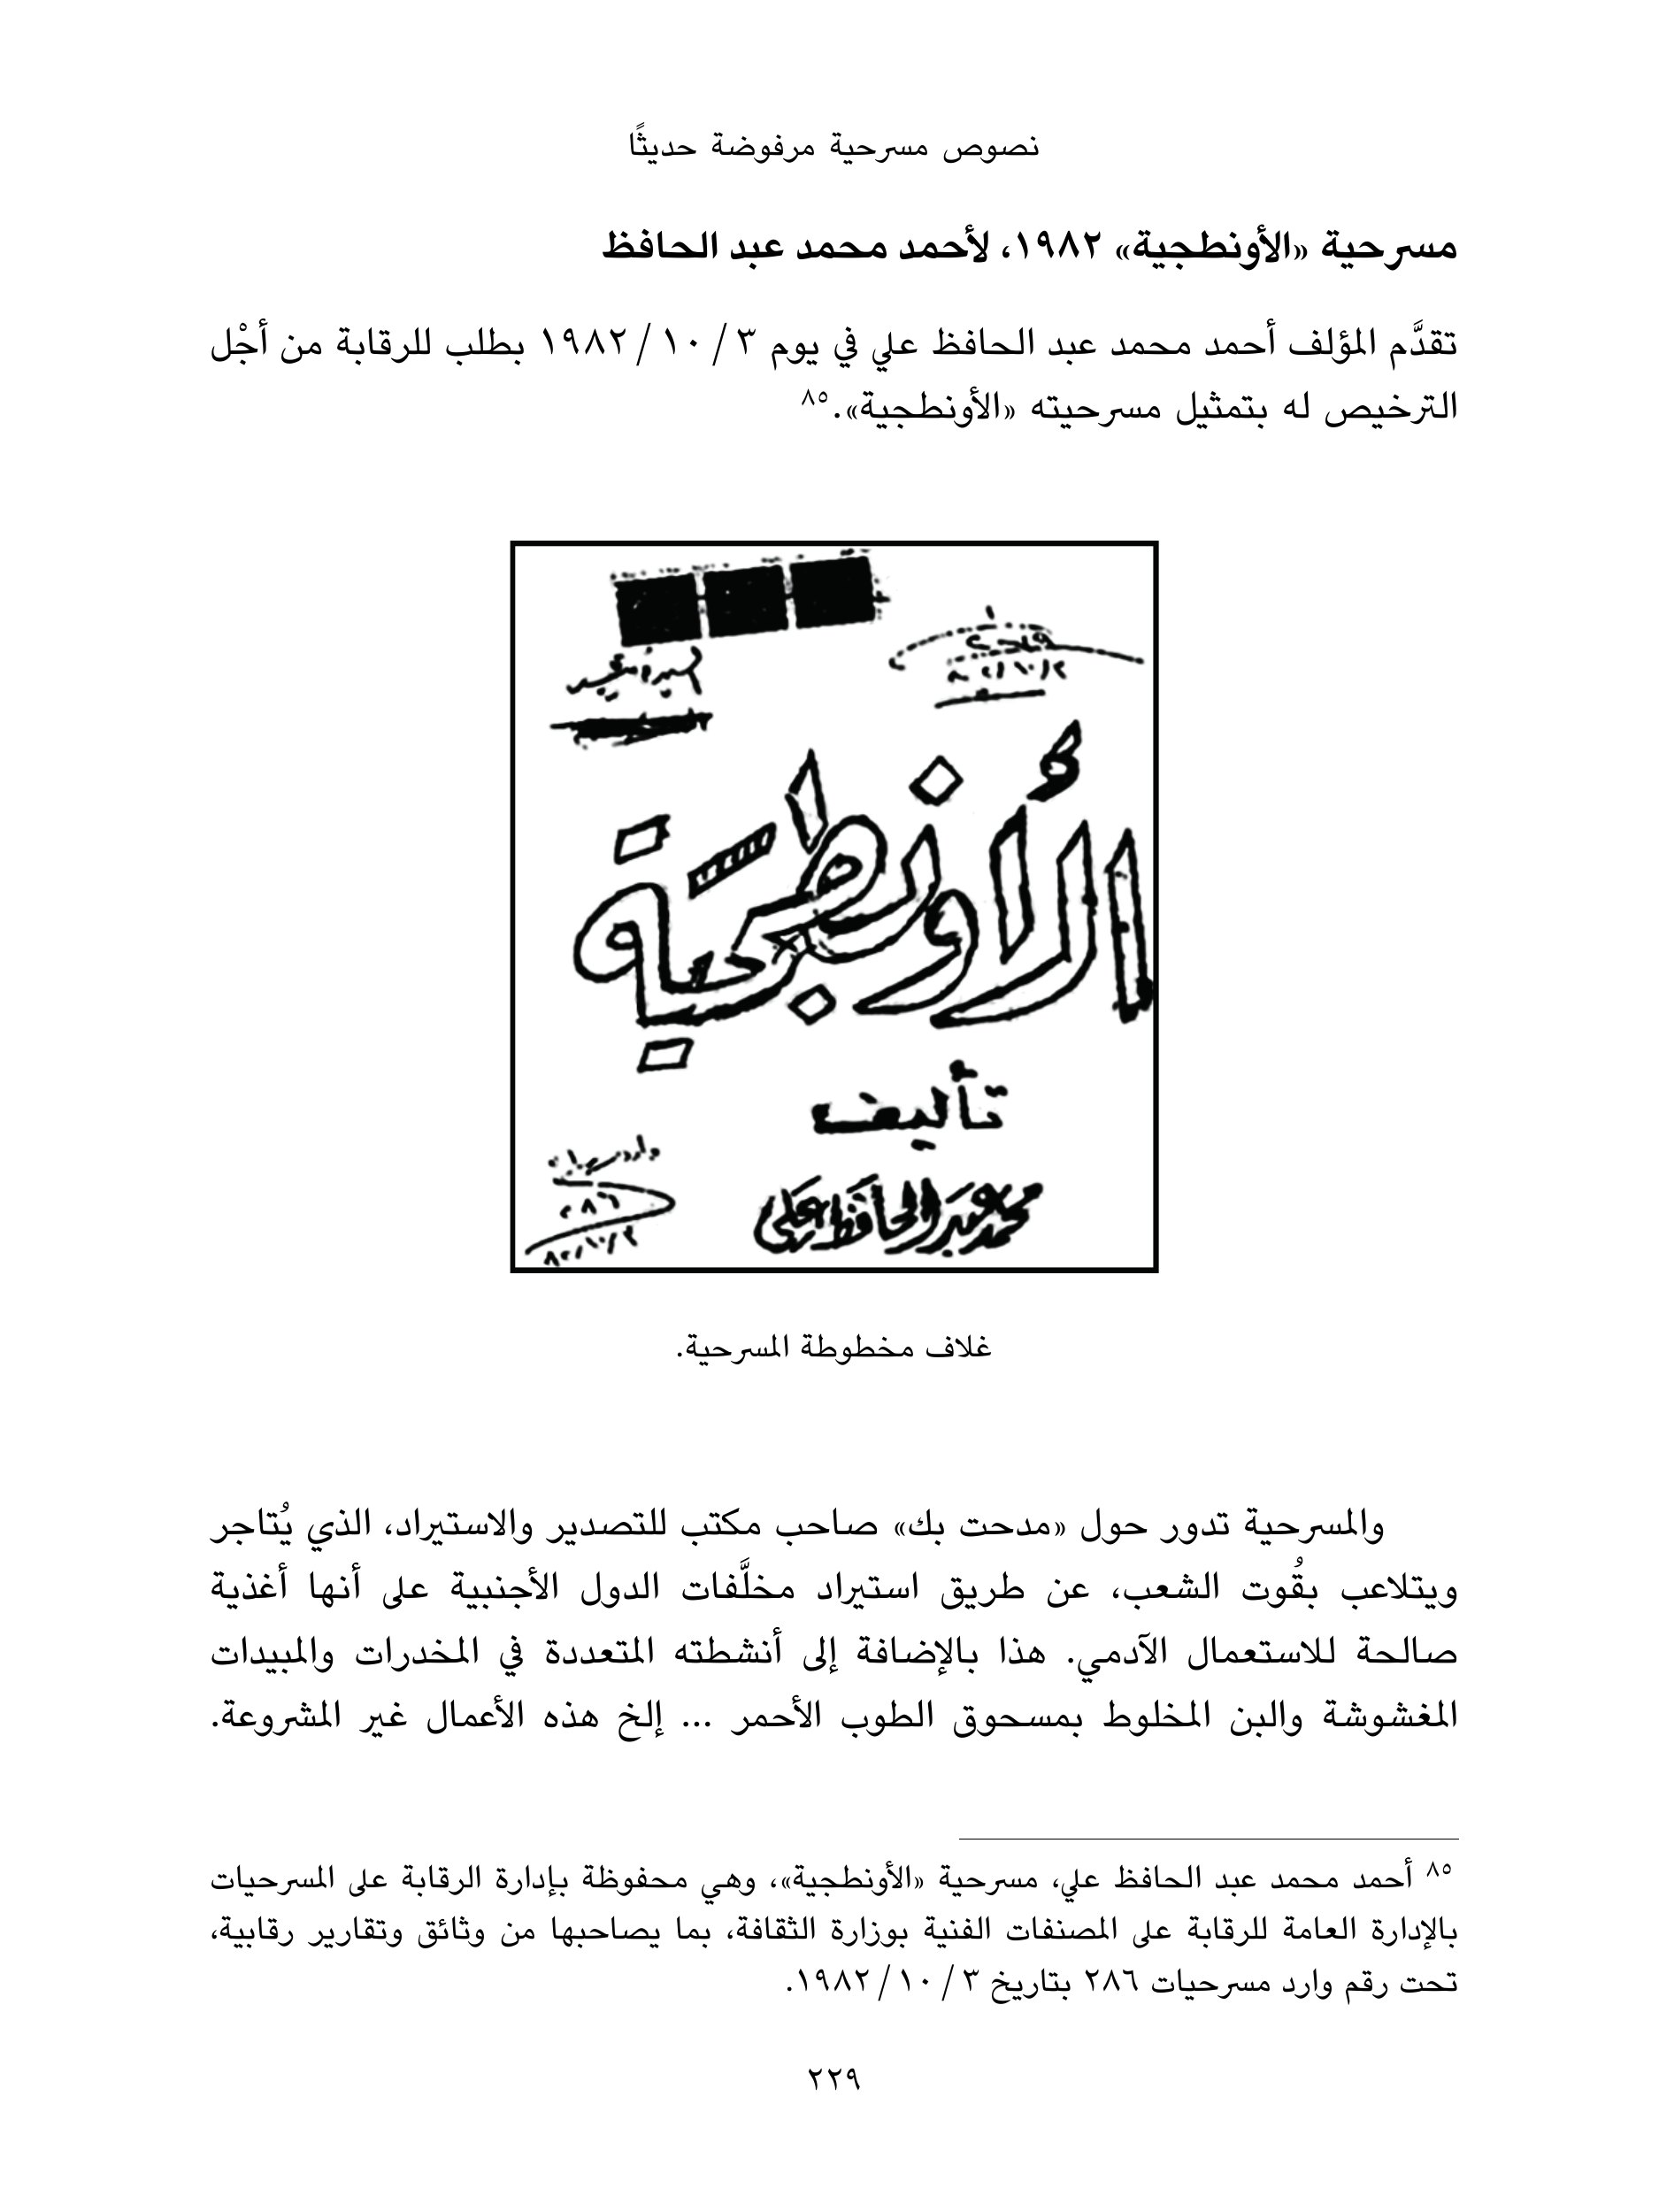 نصوص مسرحية مرفوضة حديثًا
مسرحية «الأونطجية» ١٩٨٢، لأحمد محمد عبد الحافظ
تقدَّم المؤلف أحمد محمد عبد الحافظ علي في يوم ٣ / ١٠ / ١٩٨٢ بطلب للرقابة من أجْل
الترخيص له بتمثيل مسرحيته «الأونطجية».٨٥
الأُونطجية
تأليف
محمد عبد الحافظ علي
٢٨٦
غلاف مخطوطة المسرحية.
والمسرحية تدور حول «مدحت بك» صاحب مكتب للتصدير والاستيراد، الذي يُتاجر
ويتلاعب بقُوت الشعب، عن طريق استيراد مخلَّفات الدول الأجنبية على أنها أغذية
صالحة للاستعمال الآدمي. هذا بالإضافة إلى أنشطته المتعددة في المخدرات والمبيدات
المغشوشة والبن المخلوط بمسحوق الطوب الأحمر … إلخ هذه الأعمال غير المشروعة.
٨٥ أحمد محمد عبد الحافظ علي، مسرحية «الأونطجية»، وهي محفوظة بإدارة الرقابة على المسرحيات
بالإدارة العامة للرقابة على المصنفات الفنية بوزارة الثقافة، بما يصاحبها من وثائق وتقارير رقابية،
تحت رقم وارد مسرحيات ٢٨٦ بتاريخ ٣ / ١٠ / ١٩٨٢.
٢٢٩